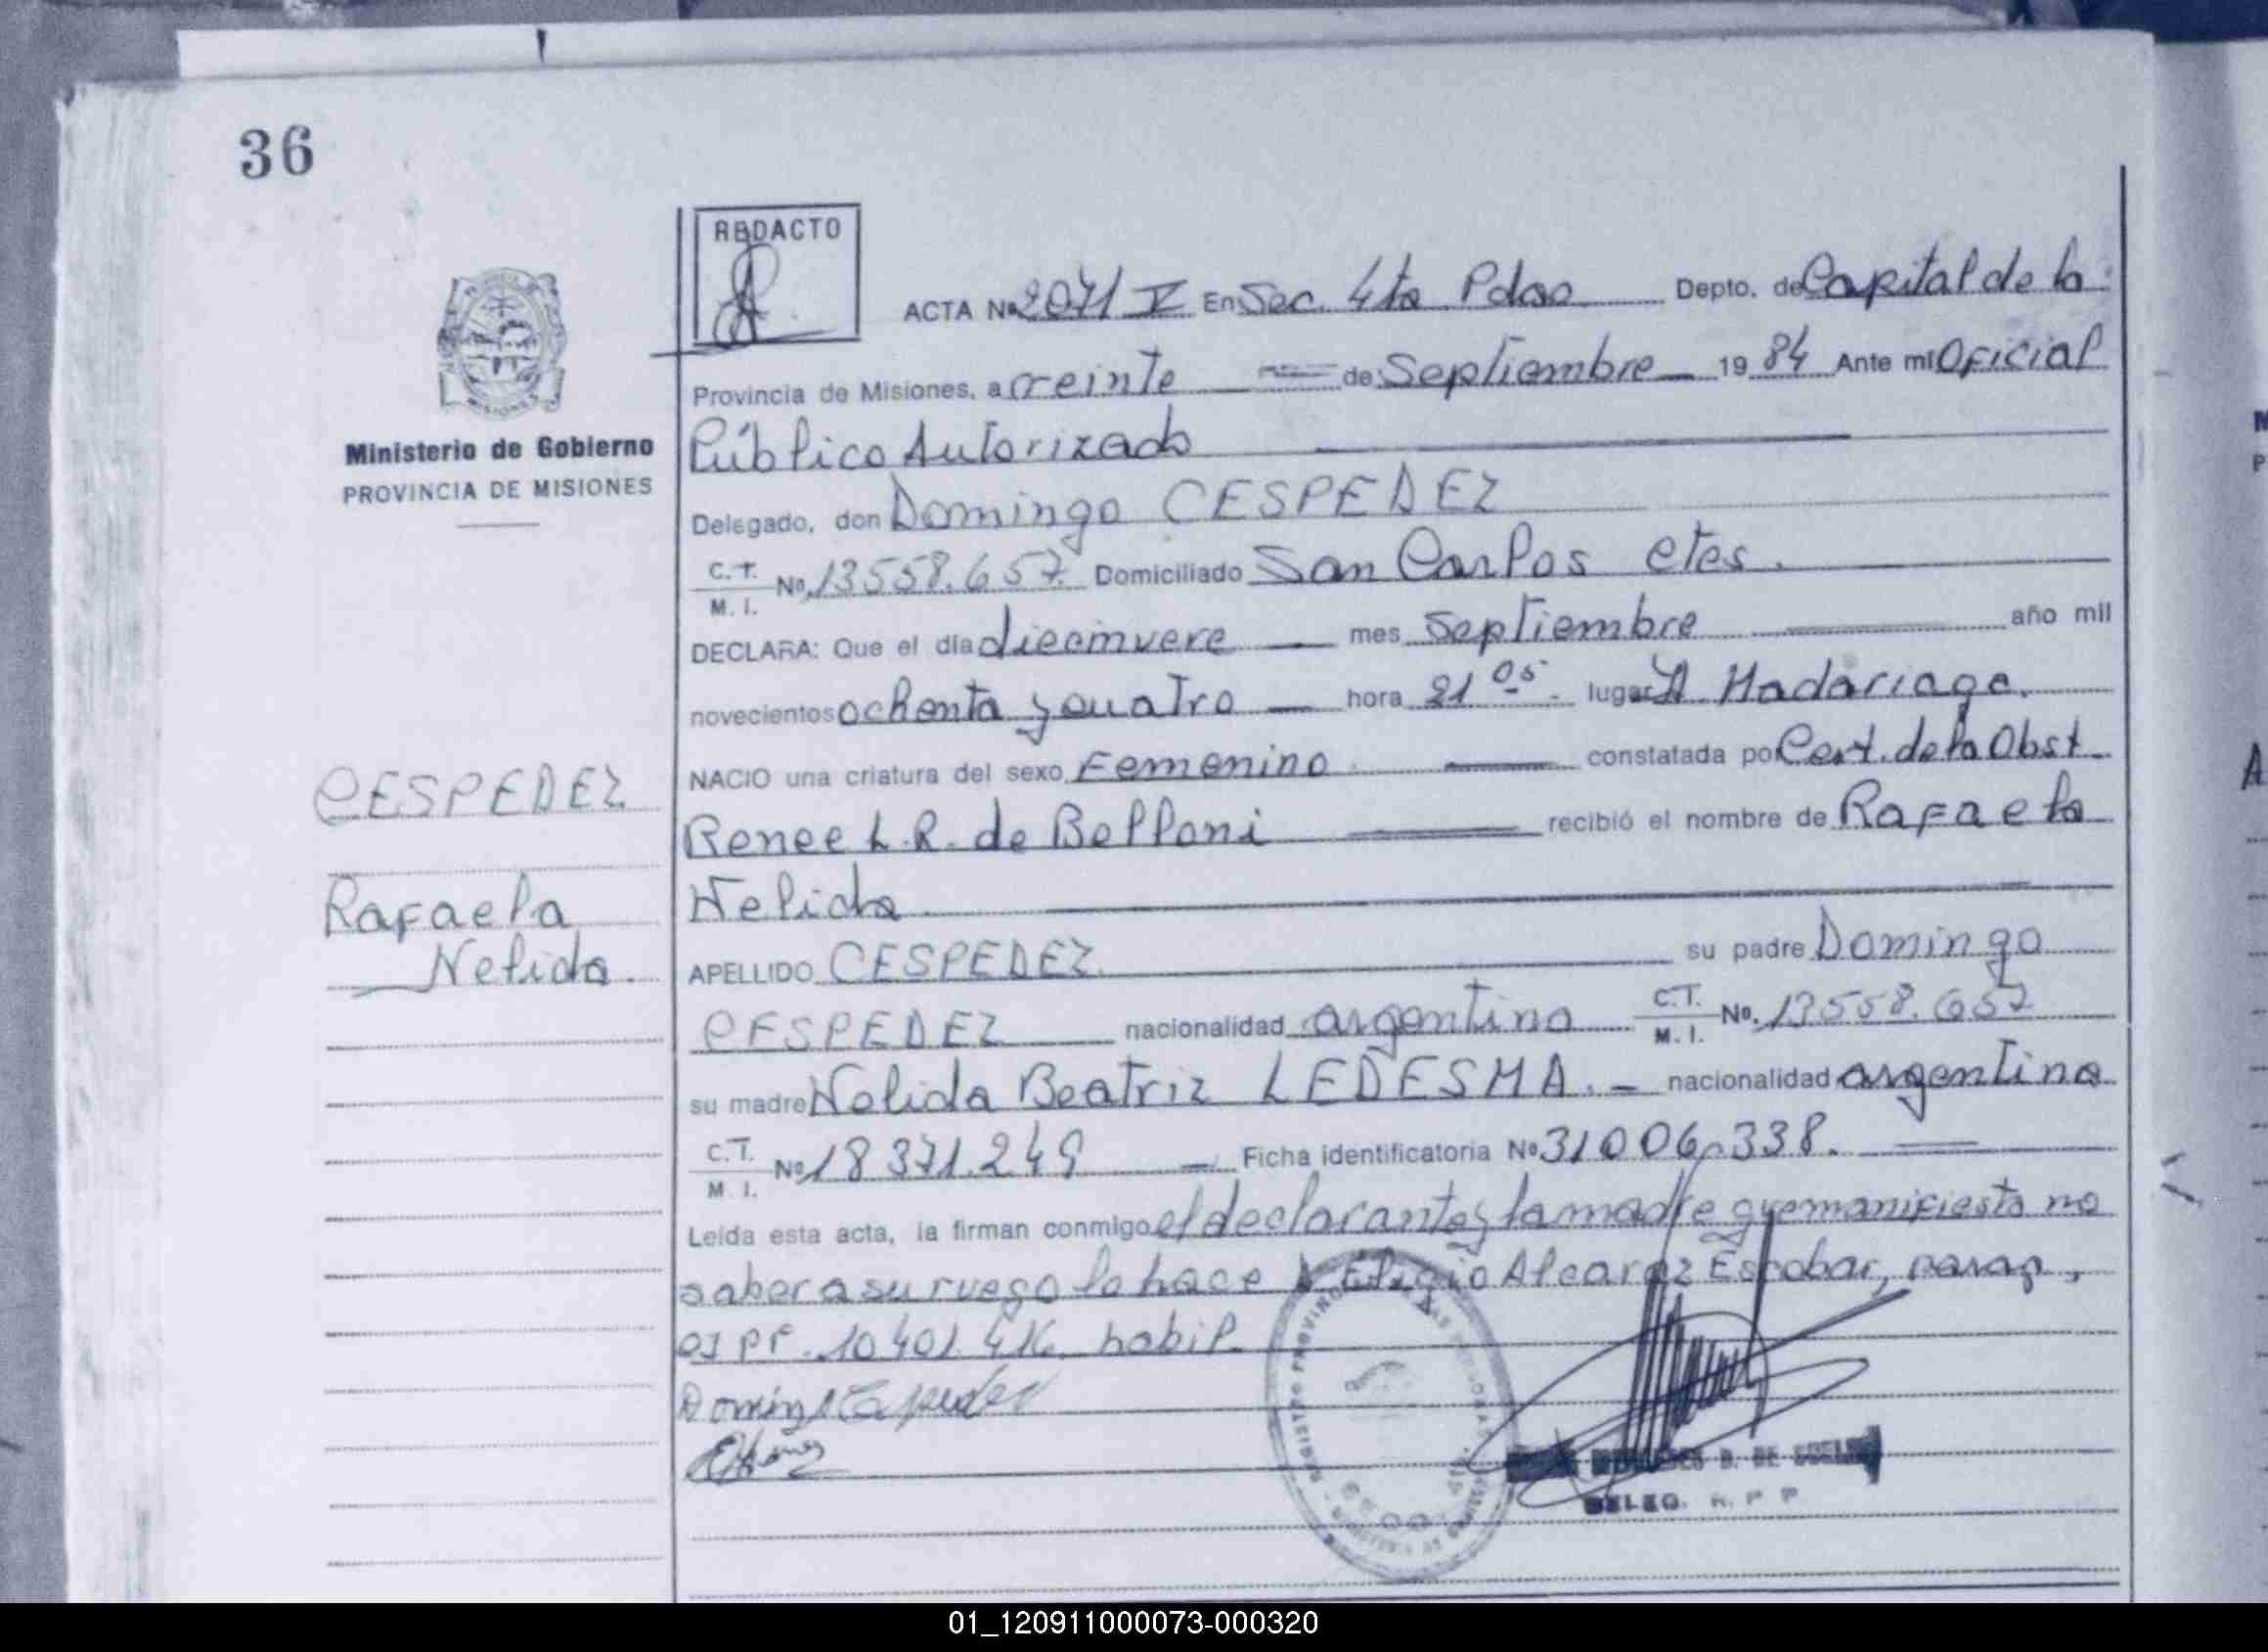 36
REDACTO
ACTA Nº 2071 V En Sec. 4ta Pdas Depto. de Capital de la
Provincia de Misiones, a veinte de Septiembre 19 84 Ante mí Oficial
Público Autorizado
Ministerio de Gobierno
PROVINCIA DE MISIONES
MISIONES
Delegado, don Domingo CESPEDEZ
C.T. M.I. Nº 13558.657 Domiciliado San Carlos ctes.
DECLARA: Que el día diecinueve mes Septiembre año mil
novecientos ochenta y cuatro hora 21 05 lugar H Madariaga.
NACIO una criatura del sexo Femenino constatada por Cert. de la Obst
Renee L. R. de Belloni recibió el nombre de Rafaela
Nelida
APELLIDO CESPEDEZ su padre Domingo
CESPEDEZ nacionalidad argentino C.T. M.I. No. 13558.657
su madre Nelida Beatriz LEDESMA. nacionalidad argentina
C.T. M.I. Nº 18 371.249 Ficha identificatoria Nº 31006.338.
Leída esta acta, la firman conmigo el declarante y la madre que manifiesta no
saber a su ruego lo hace Eligio Alcaraz Escobar, parag,
CI PF. 10401.416 habil.
CESPEDEZ
Rafaela
Nelida.
REGISTRO PROVINCIAL DE LAS PERSONAS
B. DE
DELEG. R. P P
01_120911000073-000320